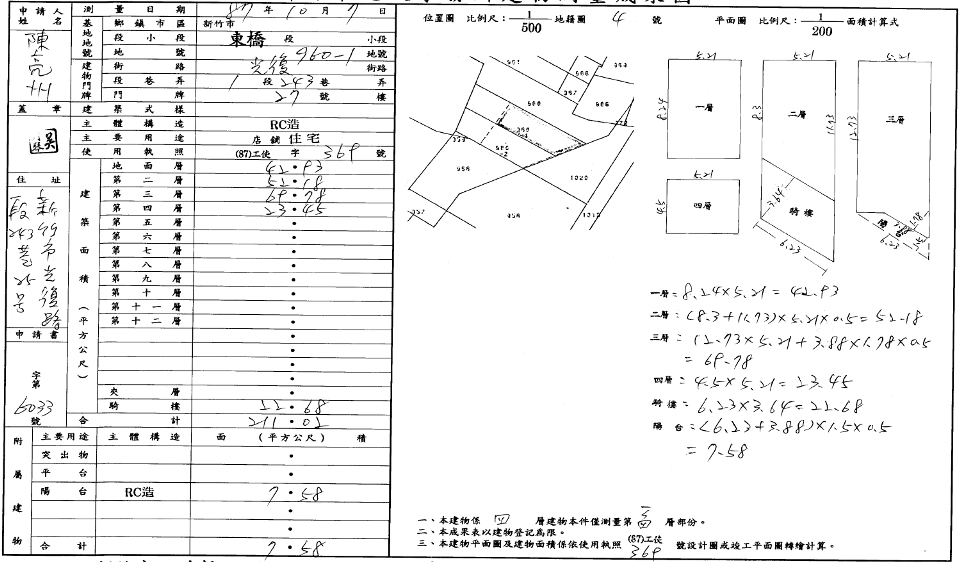 測量日期 87年10月7日
位置圖 比例尺：1/500 地籍圖 4 號
平面圖 比例尺：1/200 面積計算式
申請人姓名
陳亮州
基地地號
鄉鎮市區 新竹市
段小段 東橋 段 小段
地號 960-1 地號
建物門牌
街路 光復 街路
段巷弄 1 段 243 巷 弄
門牌 27 號 樓
蓋章
建築式樣
主體構造 RC造
主要用途 店鋪 住宅
使用執照 (87)工使 字 369 號
住址
新竹市光復路
段243巷25號
建築面積（平方公尺）
地面層 42.93
第二層 52.18
第三層 69.78
第四層 23.45
第五層
第六層
第七層
第八層
第九層
第十層
第十一層
第十二層
申請書
字第
6033
號
夾層
騎樓 22.68
合計 211.02
附屬建物
主要用途 主體構造 面（平方公尺）積
突出物
平台
陽台 RC造 7.58
合計 7.58
956
1020
5.21
8.24
一層
5.21
8.3
11.73
二層
3.64
騎樓
6.23
5.21
12.73
三層
陽
6.23
5.21
4.5
四層
一層=8.24×5.21=42.93
二層=(8.3+11.73)×5.21×0.5=52.18
三層=12.73×5.21+3.88×1.78×0.5
=69.78
四層=4.5×5.21=23.45
騎樓=6.23×3.64=22.68
陽台=(6.23+3.88)×1.5×0.5
=7.58
一、本建物係 四 層建物本件僅測量第 層部份。
二、本成果表以建物登記為限。
三、本建物平面圖及建物面積係依使用執照 (87)工使 369 號設計圖或竣工平面圖轉繪計算。